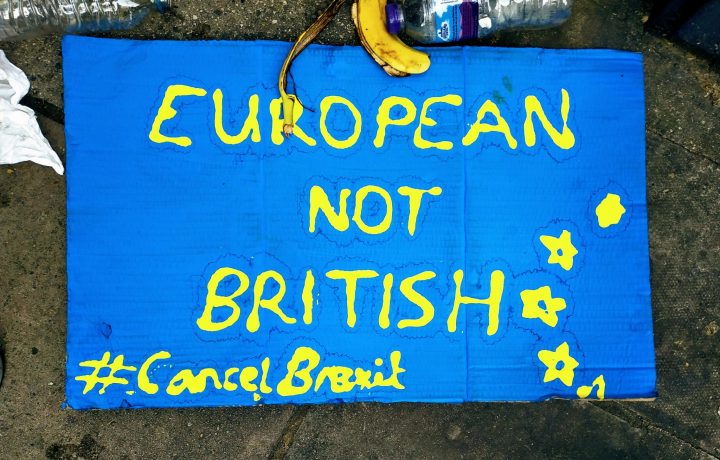 EUROPEAN
NOT
BRITISH
#CancelBrexit